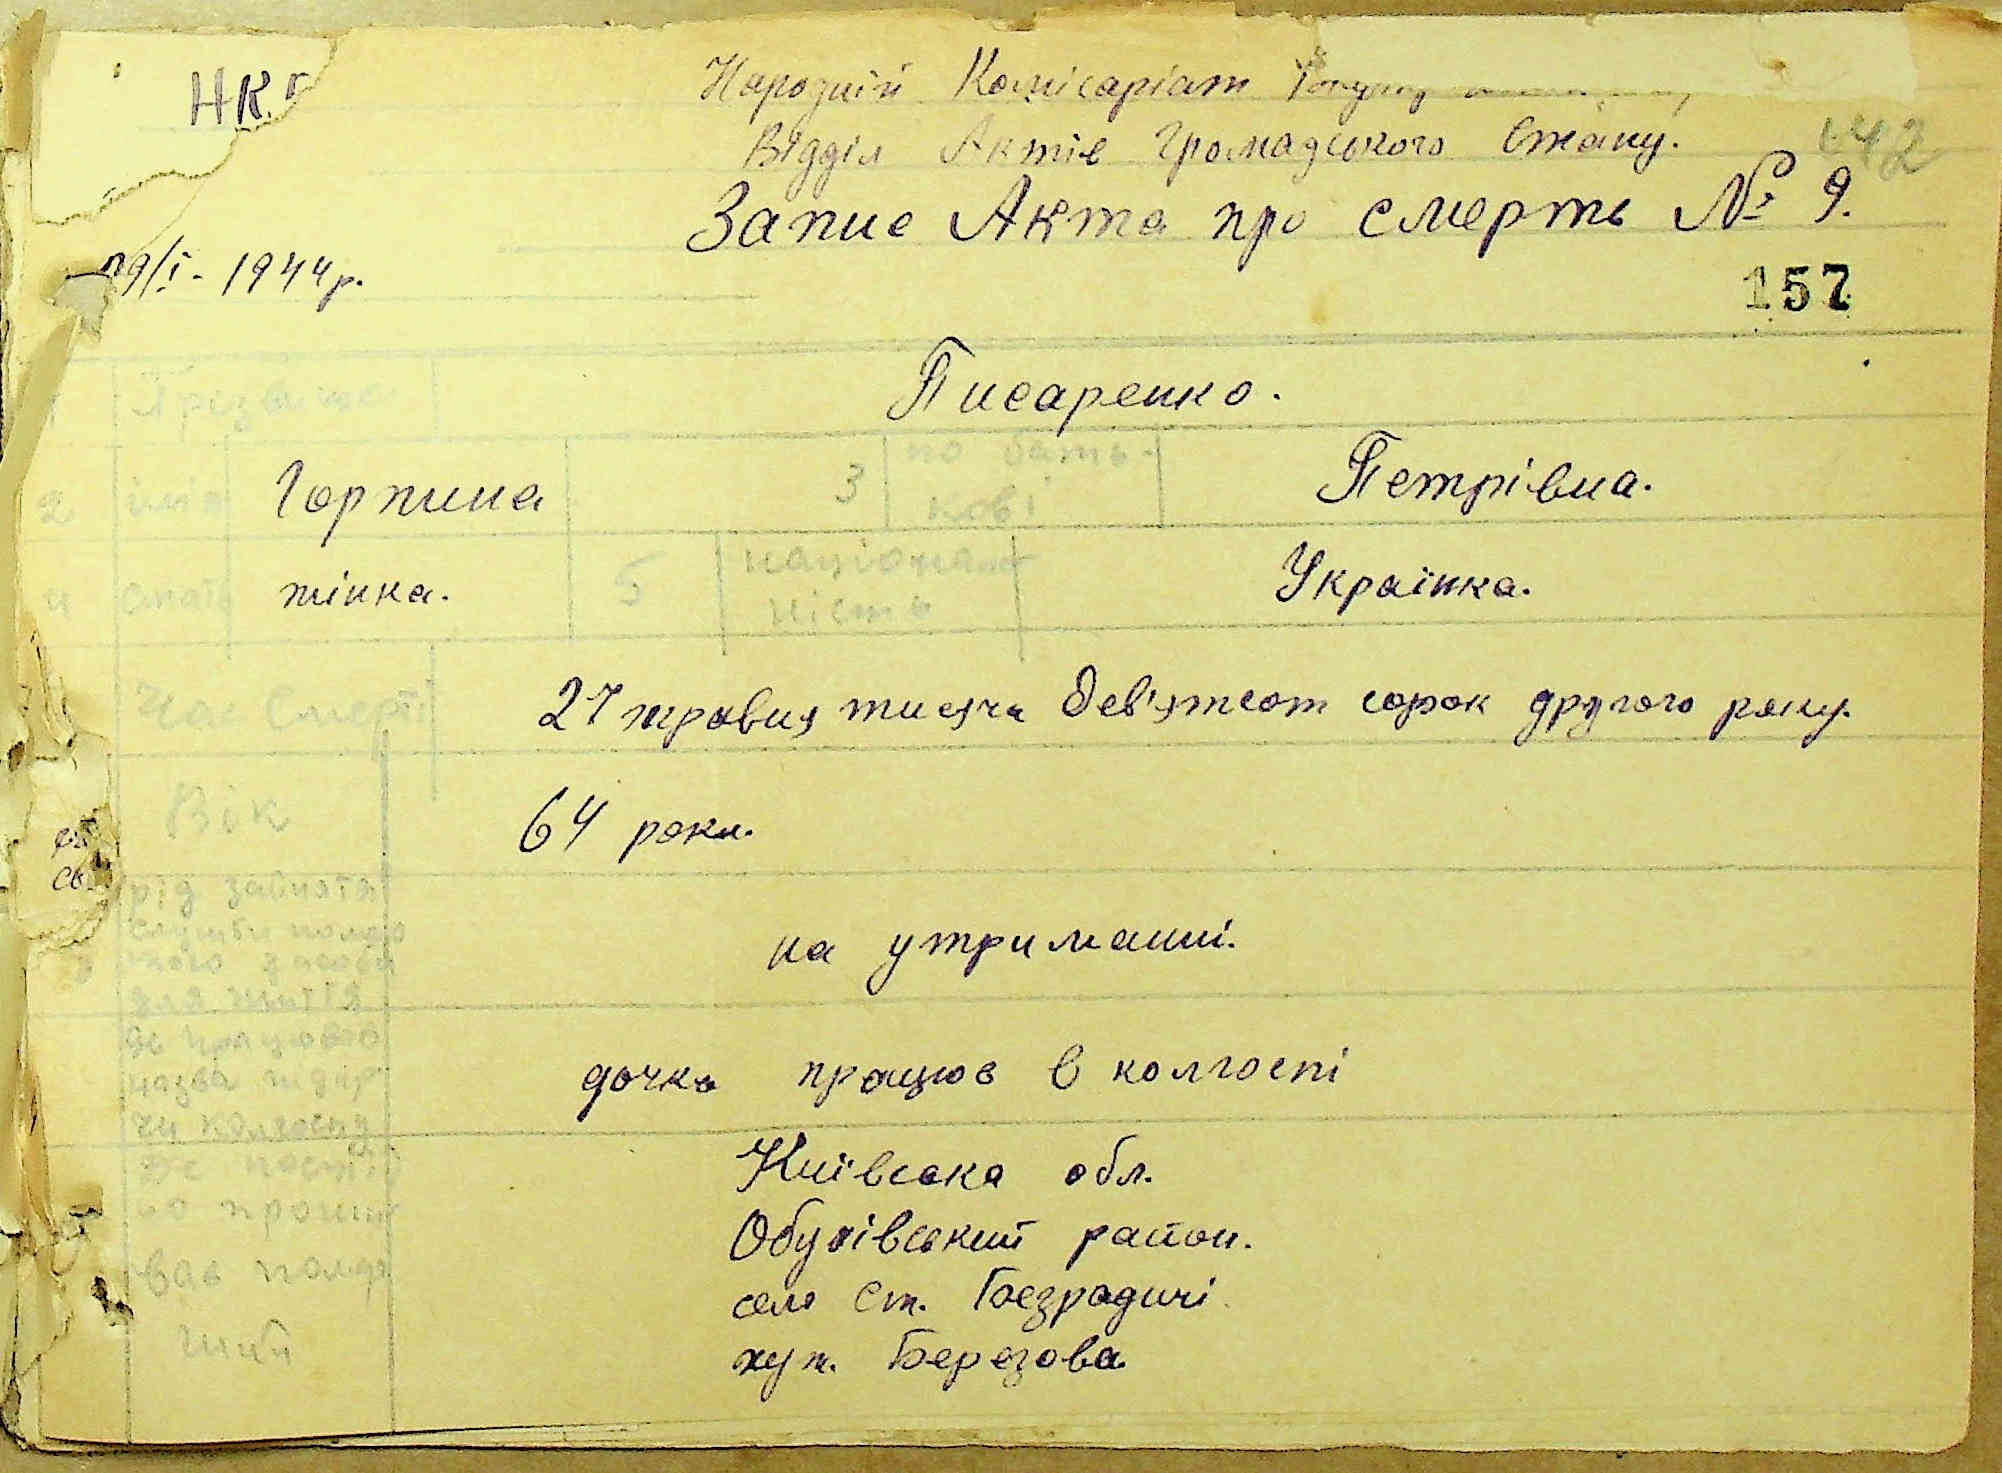 НК
Народній Комісаріат
Відділ Актів Громадського Стану.
42
Запис Акта про смерть № 9.
29/І - 1944 р.
157
1 Прізвище Писаренко.
2 імя Горпина 3 по батькові Петрівна.
4 стать жінка. 5 національність Українка.
Час Смерті 27 травня тисяча дев'ятсот сорок другого року.
Вік 64 роки.
рід заняття
на утриманні.
для життя
де працював
назва підпр
чи колгоспу
дочка працює в колгоспі
де постій
но прожи
вав помер
ший
Київська обл.
Обухівський район.
село Ст. Безрадичі
хут. Березова